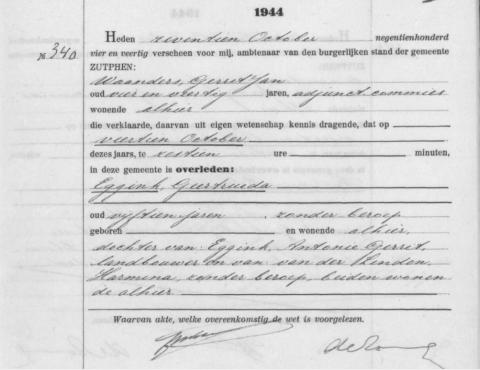 1944
Heden zeventien October negentienhonderd
No. 340
vier en veertig verscheen voor mij, ambtenaar van den burgerlijken stand der gemeente
ZUTPHEN:
Waanders, Gerrit Jan
oud vier en veertig jaren, adjunct commies
wonende alhier
die verklaarde, daarvan uit eigen wetenschap kennis dragende, dat op
viertien October
dezes jaars, te zestien ure minuten,
in deze gemeente is overleden:
Eggink, Geertruida
oud vijftien jaren, zonder beroep
geboren en wonende alhier,
dochter van: Eggink, Antonie Gerrit,
landbouwer en van van der Linden,
Harmina, zonder beroep, beiden wonen
de alhier
Waarvan akte, welke overeenkomstig de wet is voorgelezen.